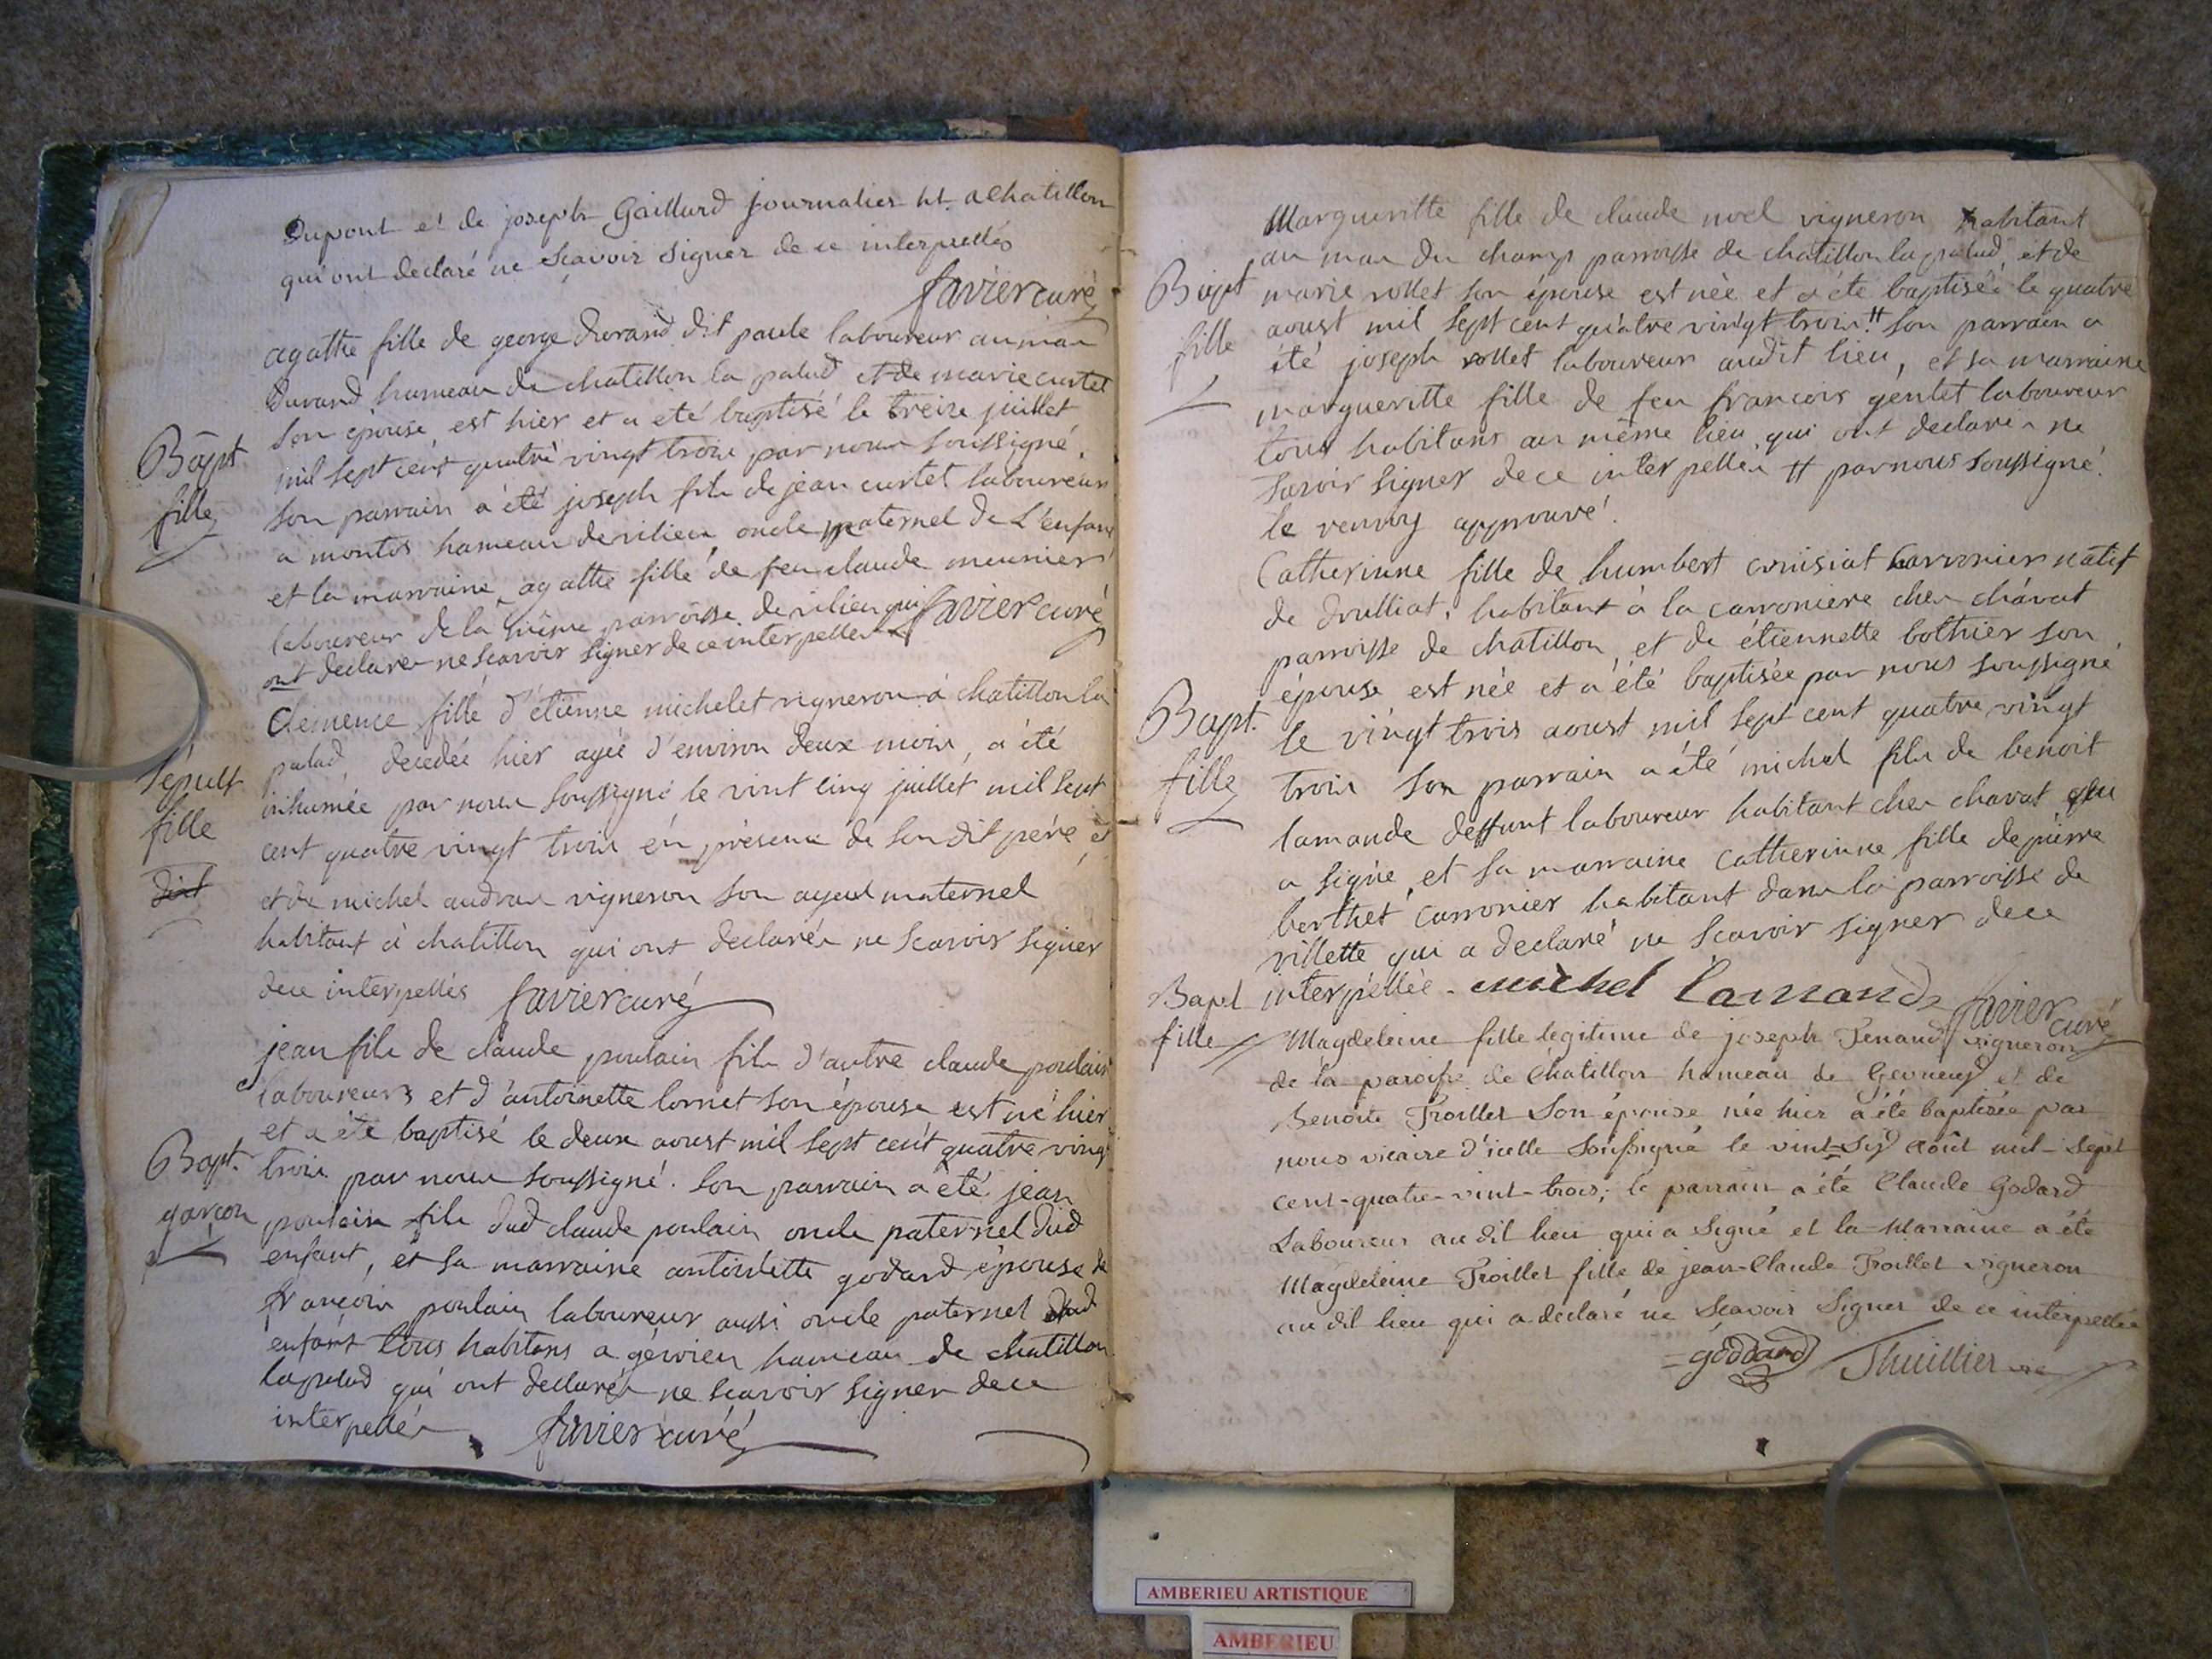 Dupont et de joseph Gaillard journalier ht. a Chatillon
qui ont declaré ne Scavoir Signer de ce interpellés
favier curé
agathe fille de george durand dit paule laboureur au mas
Durand hameau de chatillon la palud et de marie curtet
son épouse est hier et a eté baptisé le treize juillet
Bapt
mil sept cent quatre vingt trois par nous soussigné.
fille
son parrain a été joseph fils de jean curtet laboureur
a montos hameau de rilieu oncle paternel de L'enfant
et la marraine agathe fille de feu claude meunier
laboureur de la même parroisse de rilieu qui favier curé
ont declarés ne scavoir signer de ce interpellés
Clemence fille d'étienne michelet vigneron à chatillon la
palud, decedée hier agée d'environ deux mois, a été
Sépult
inhumée par nous soussigné le vint cinq juillet mil sept
fille
cent quatre vingt trois én présence de son dit pére et
et de michel audran vigneron son ayeul maternel
habitant à chatillon qui ont declarés ne scavoir signer
de ce interpellés favier curé
jean fils de claude poulain fils d'autre claude poulain
laboureurs et d'antoinette lornet son épouse est né hier
et a été baptisé le deux aoust mil sept cent quatre vingt
Bapt.
trois par nous soussigné. son parrain a eté jean
garçon
poulain fils dud claude poulain oncle paternel dud
enfant, et sa marraine antoinette godard épouse de
françois poulain laboureur aussi oncle paternel dud
enfant tous habitans a gévrieu hameau de chatillon
lapalud qui ont declarés ne scavoir signer de ce
interpellés favier curé
Margueritte fille de claude noel vigneron habitant
au mas du champ parroisse de chatillon la palud, et de
Bapt
marie rollet son épouse est née et a été baptisée le quatre
fille
aoust mil sept cent quatre vingt trois. # son parrain a
été joseph rollet laboureur audit lieu, et sa marraine
margueritte fille de feu francois gentet laboureur
tous habitans au même lieu, qui ont declarés ne
savoir signer de ce interpellés # par nous soussigné.
le renvoy approuvé.
Catherinne fille de humbert cruisiat carronier natif
de druilliat, habitant à la carroniere ches chavat
parroisse de chatillon, et de étiennette bothier son
épouse est née et a été baptisée par nous soussigné
Bapt.
le vingt trois aoust mil sept cent quatre vingt
fille
trois son parrain a été michel fils de benoit
lamande deffunt laboureur habitant ches chavat qui
a signé, et sa marraine catherinne fille de pierre
berthet carronier habitant dans la parroisse de
villette qui a declaré ne scavoir signer de ce
interpellée. michel Lamande favier curé
Bapt
fille
Magdeleine fille legitime de joseph Tenand vigneron
de la paroisse de Châtillon hameau de Gevrieux et de
Benoite Troillet Son épouse née hier a été baptisée par
nous vicaire d'icelle Soussigné le vint-six août mil-sept
cent-quatre-vint-trois; le parrain a été Claude Godard
Laboureur audit lieu qui a Signé et la Marraine a été
Magdeleine Troillet fille de jean-Claude Troillet vigneron
audit lieu qui a déclaré ne Scavoir Signer de ce interpellée
goddard Thuillier vic
AMBERIEU ARTISTIQUE
AMBERIEU